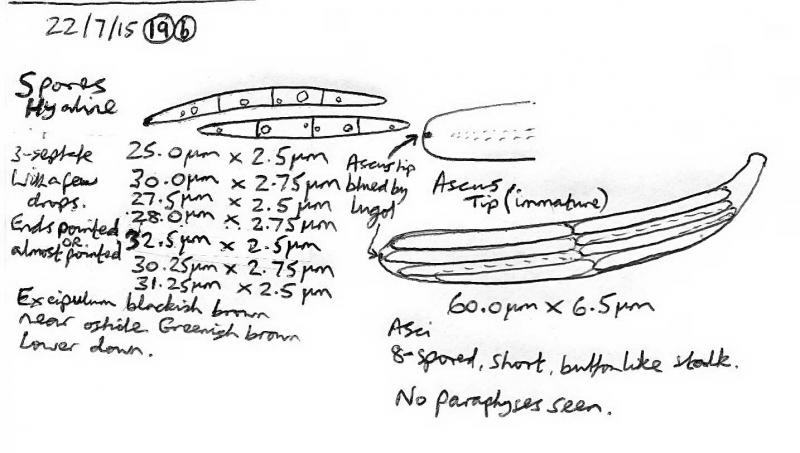 22/7/15 19 b
Spores
Hyaline
3-septate
With a few
drops.
Ends pointed
OR
almost pointed
25.0µm x 2.5µm
30.0µm x 2.75µm
27.5µm x 2.5µm
28.0µm x 2.75µm
32.5µm x 2.5µm
30.25µm x 2.75µm
31.25µm x 2.5µm
Excipulum blackish brown
near ostiole. Greenish brown
lower down.
Ascus tip
blued by
Lugol
Ascus
Tip (immature)
60.0µm x 6.5µm
Asci
8-spored, short, button like stalk.
No paraphyses seen.